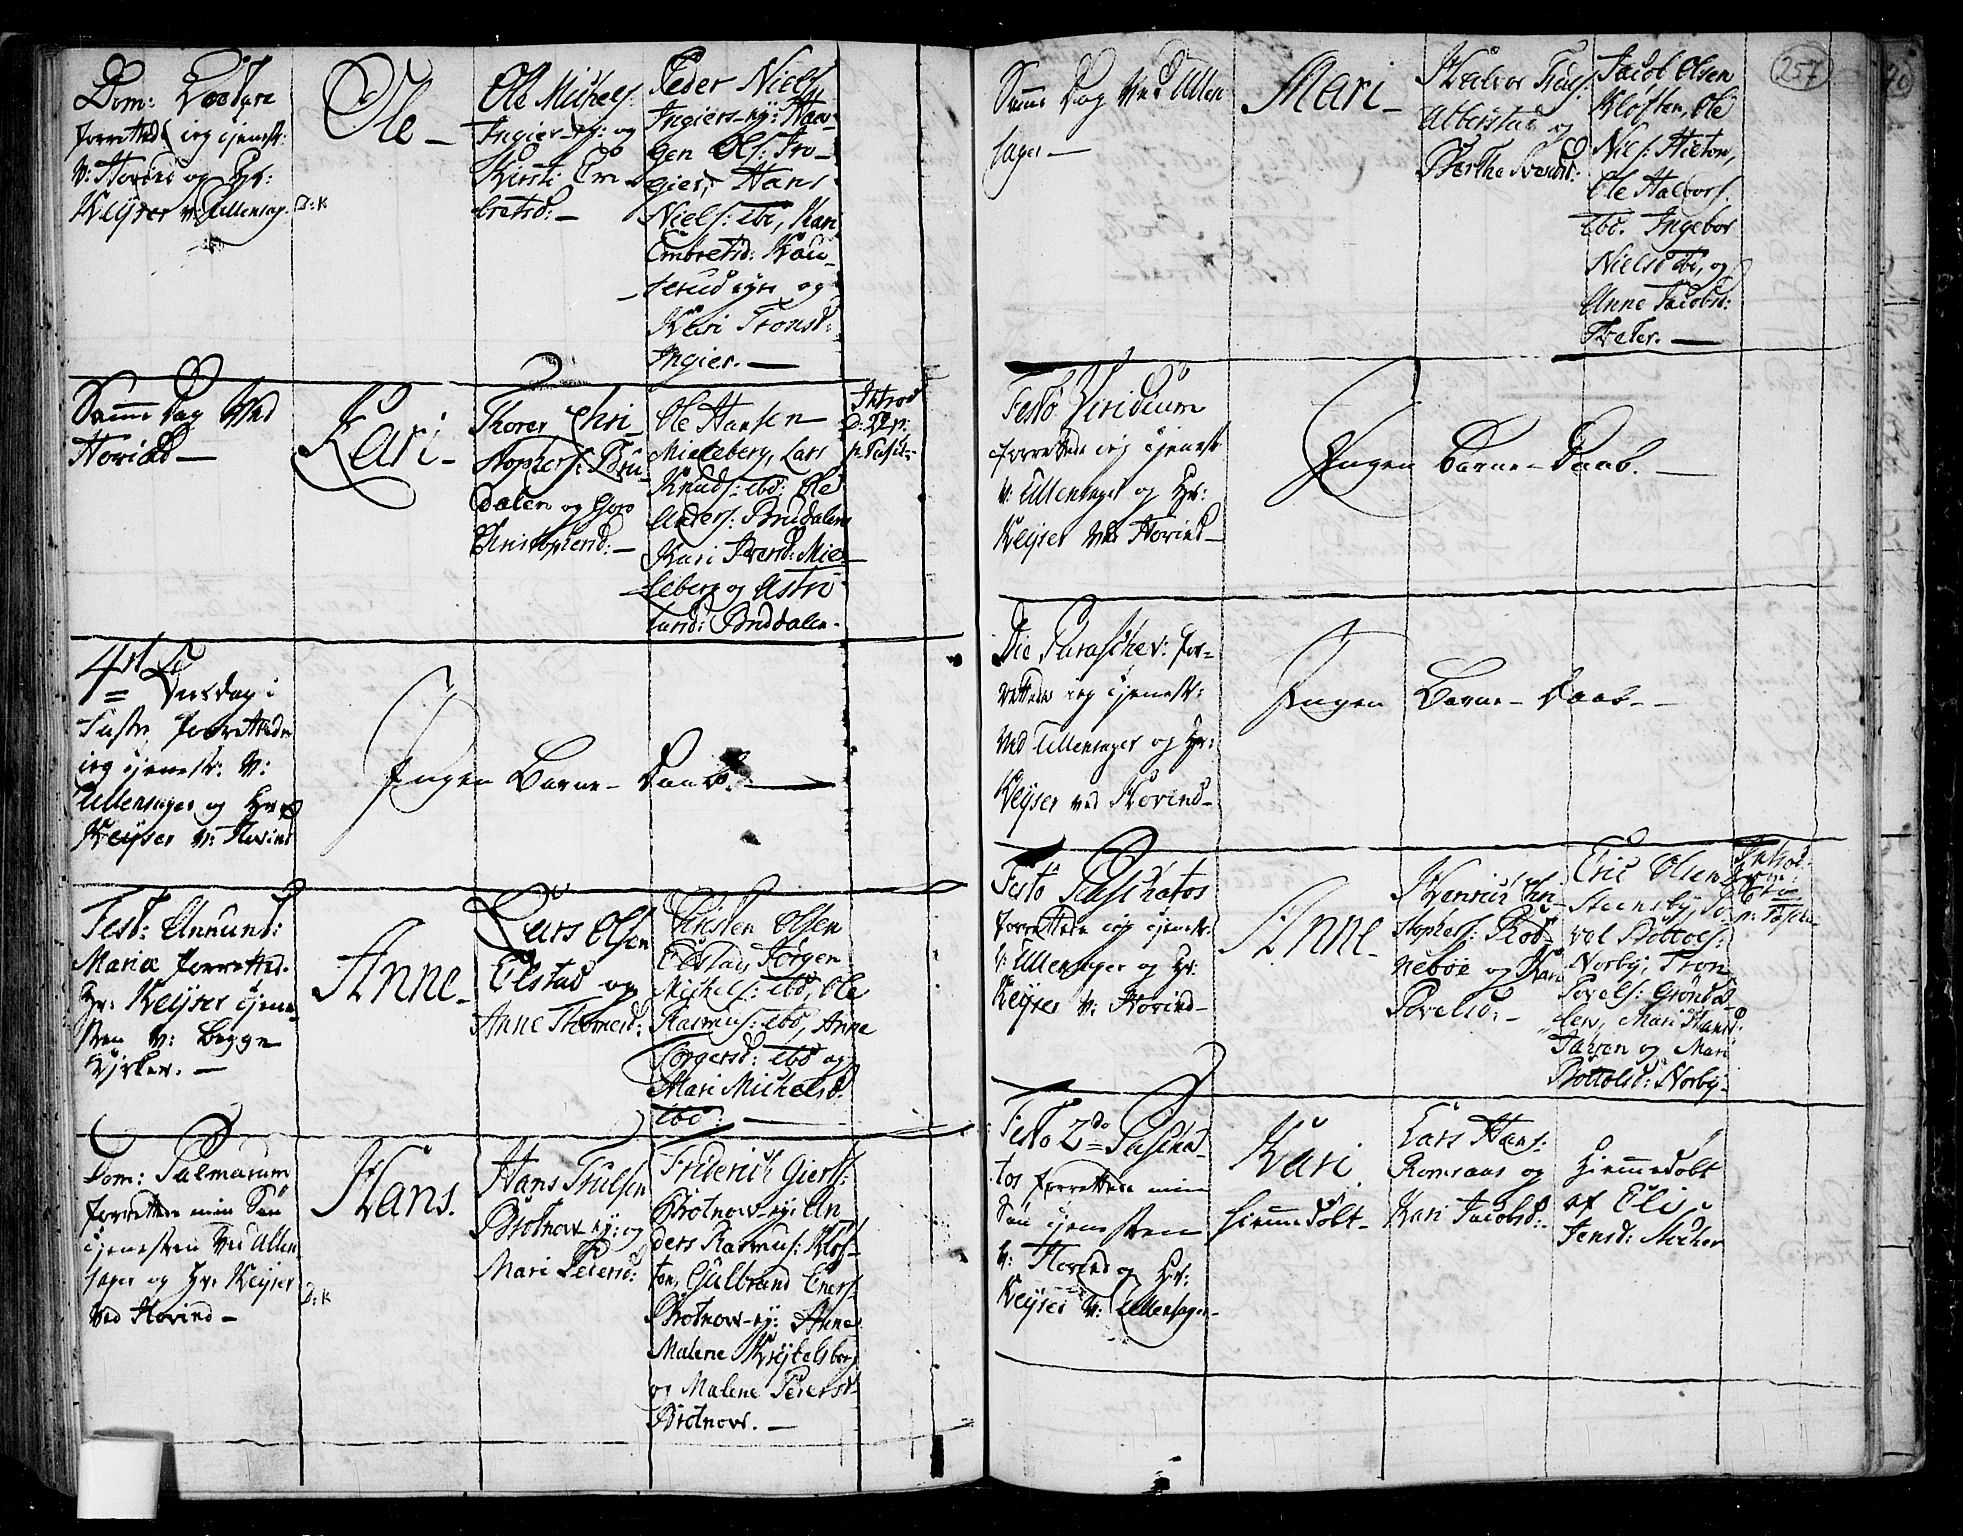 Dom: Laetare
forrettede ieg tjenest:
v: Hovind og Hr:
Keyser v: Ullensag.
D: K
Ole
Ole Michels:
Ingier-ey: og
Kirsti Em
bretsd:
Peder Niels
Ingiers-ey: Haa-
gen Ols: Fro-
gier, Hans
Niels: ibd, Kari
Embretsd: Kau-
serud eyre og
Kari Tronsd:
Ingier.
Samme Dag Ved
Hovind
Kari
Thorer Chri
stophers: Bru-
dalen og Goro
Christophersd:
Ole Hansen
Mieleberg, Lars
Knuds: ibd: Ole
Anders: Brudalens
Kari Iversd: Mie-
leberg og Astri
Larsd: Bruddalen.
Introd
D: 22 p:
p: Pasch:
4de Tirsdag i
Faste forrettede
ieg tjenest: v:
Ullensager og Hr:
Keyser v: Hovind
Ingen Barne-Daab.
Fest: Annunt:
Mariæ forretted.
Hr: Keyser tjene-
sten v: begge
Kirker.
Anne
Lars Olsen
Elstad og
Anne Thomesd:
Christen Olsen
Elstad, Jørgen
Michels: ibd, Ole
Rasmus: ibd, Anne
Jørgensd: ibd og
Mari Michelsd:
ibd:
Dom: Palmarum
forrettede min Søn
tjenesten Ved Ullen
sager og Hr: Keyser
ved Hovind
D: K
Hans.
Hans Trulsen
Brotnov-ey: og
Mari Pedersd:
Friderich Gierts:
Brotnov-ey: An
ders Rasmus: Kløf-
ten, Gulbrand Eners:
Brotnov-ey: Anne
Malene Krykelsberg
og Malene Pedersd
Brotnov.
257
Samme Dag Ved Ullen
sager
Mari
Halvor Truls:
Alberstad og
Berthe Iversd:
Jacob Olsen
Kløften, Ole
Niels: Hieton,
Ole Halvors:
ibd. Ingebor
Nielsd ibd, og
Anne Jacobsd:
Tveter.
Festo Viridium
forrettede ieg tjenest
v: Ullensager og Hr:
Keyser ved Hovind
Ingen Barne-Daab.
Die Paraschev: for-
rettede ieg tjenest:
ved Ullensager og Hr:
Keyser ved Hovind
Ingen Barne-Daab
Festo Paschatos
forrettede ieg tjenest:
v: Ullensager og Hr:
Keyser v: Hovind
Anne
Henrich Chri-
stophers: Rød-
nebøe og Kari
Povelsd:
Eric Olsen
Steensby, To-
vel Bottols:
Norby, Tron
Povels: Grønda-
len, Mari Hansd.
og Mari
Bottolsd: Norby
Introd:
Festo 2do Pascha-
tos forrettede min
Søn tjenesten
v: Hovind og Hr:
Keyser v: Ullensager
Kari
Hiemmedøbt
Lars Hans:
Romsaas og
Kari Jacobsd:
Hiemmedøbt
af Eli
Jensd: Mocher